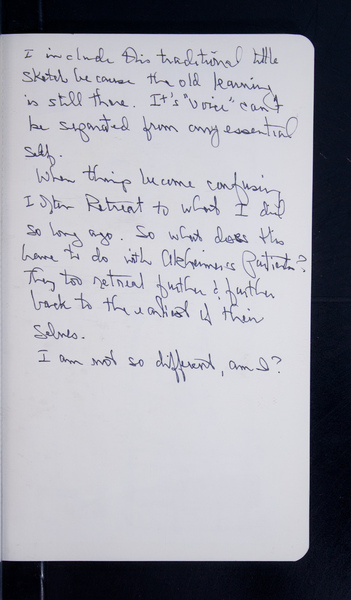 I include this traditional little
sketch because the old learning
is still there. It's "voice" can't
be separated from any essential
self.
When things become confusing
I often Retreat to what I did
so long ago. So what does this
have to do with Alzheimers Patients?
They too retreat further & further
back to the earliest of their
selves.
I am not so different, am I?